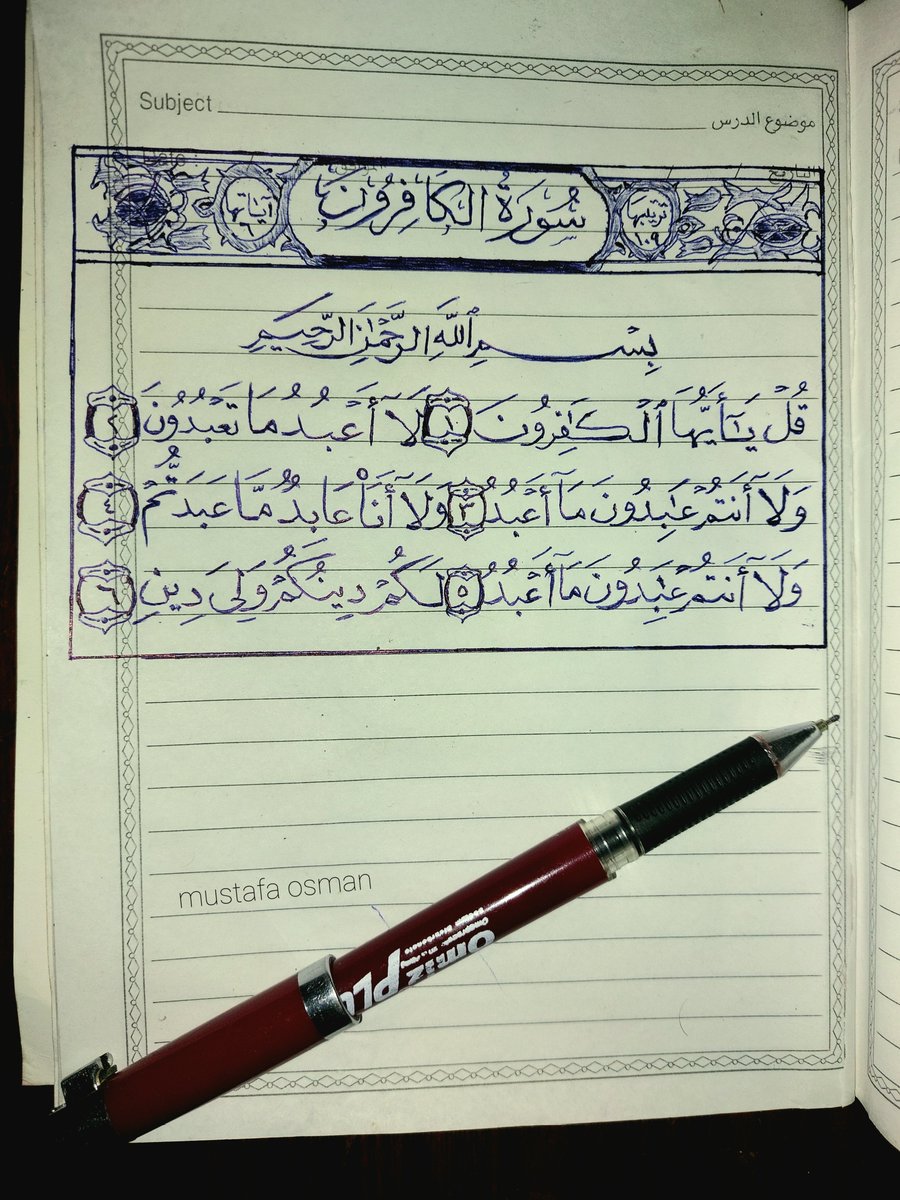 Subject موضوع الدرس
التاريخ
ترتيبها ١٠٩ سُورَةُ الكَافِرُونَ آياتها ٦
بِسْمِ ٱللَّهِ الرَّحْمَٰنِ الرَّحِيمِ
قُلْ يَٰٓأَيُّهَا ٱلْكَٰفِرُونَ ١ لَآ أَعْبُدُ مَا تَعْبُدُونَ ٢
وَلَآ أَنتُمْ عَٰبِدُونَ مَآ أَعْبُدُ ٣ وَلَآ أَنَا۠ عَابِدٌ مَّا عَبَدتُّمْ ٤
وَلَآ أَنتُمْ عَٰبِدُونَ مَآ أَعْبُدُ ٥ لَكُمْ دِينُكُمْ وَلِىَ دِينِ ٦
mustafa osman
Omiz PLU